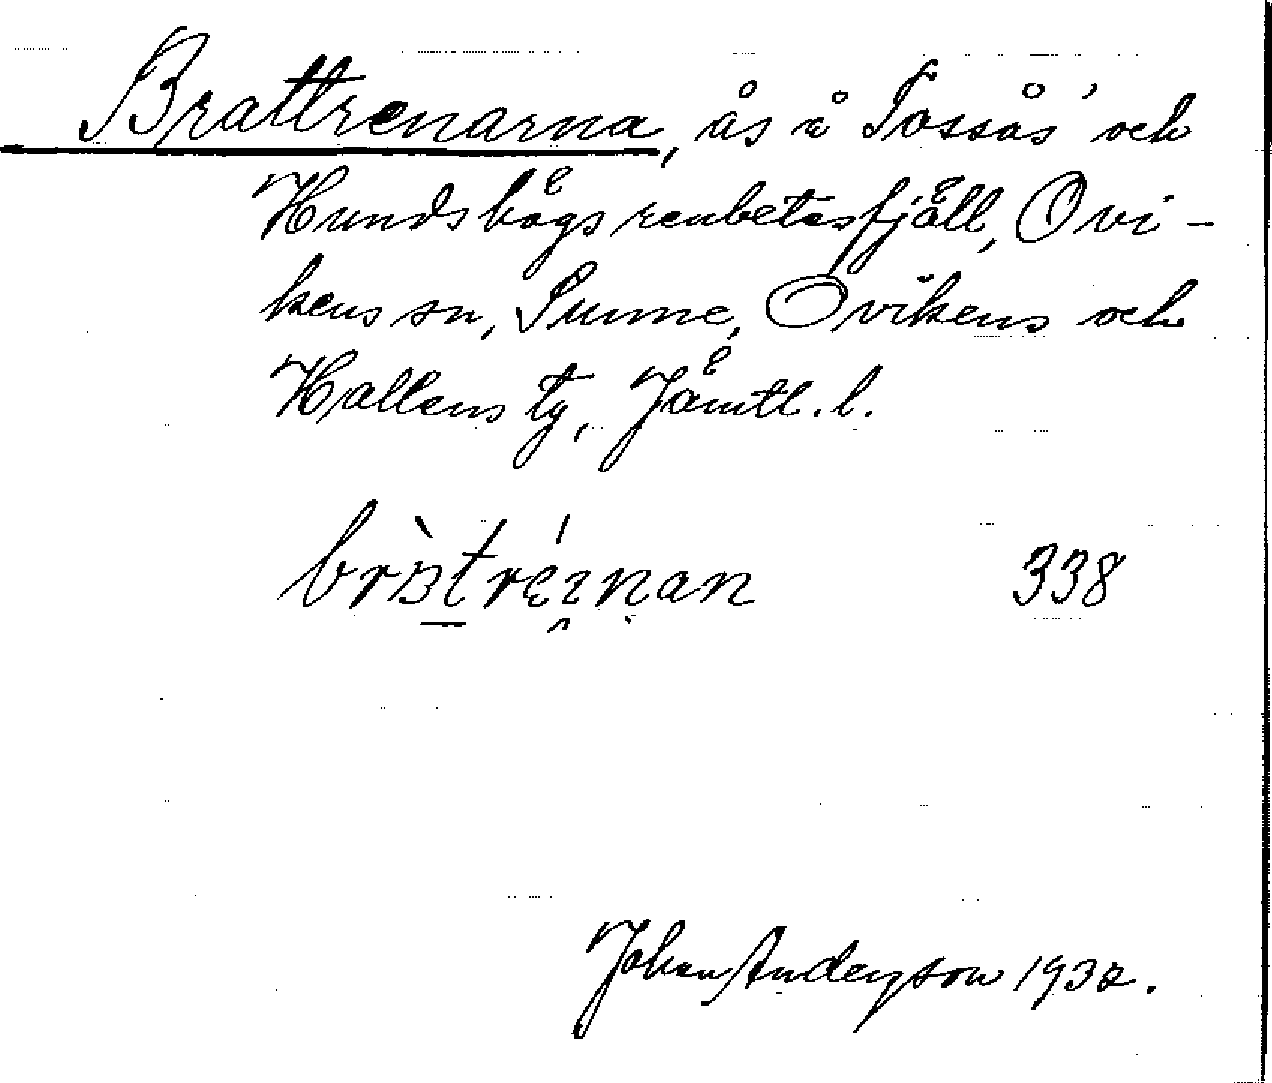 Brattrenarna, ås i Tossås' och
Hundshögs renbetesfjäll, Ovi-
kens sn, Sunne, Ovikens och
Hallens tg, Jämtl. l.
338
Johan Anderson 1932.